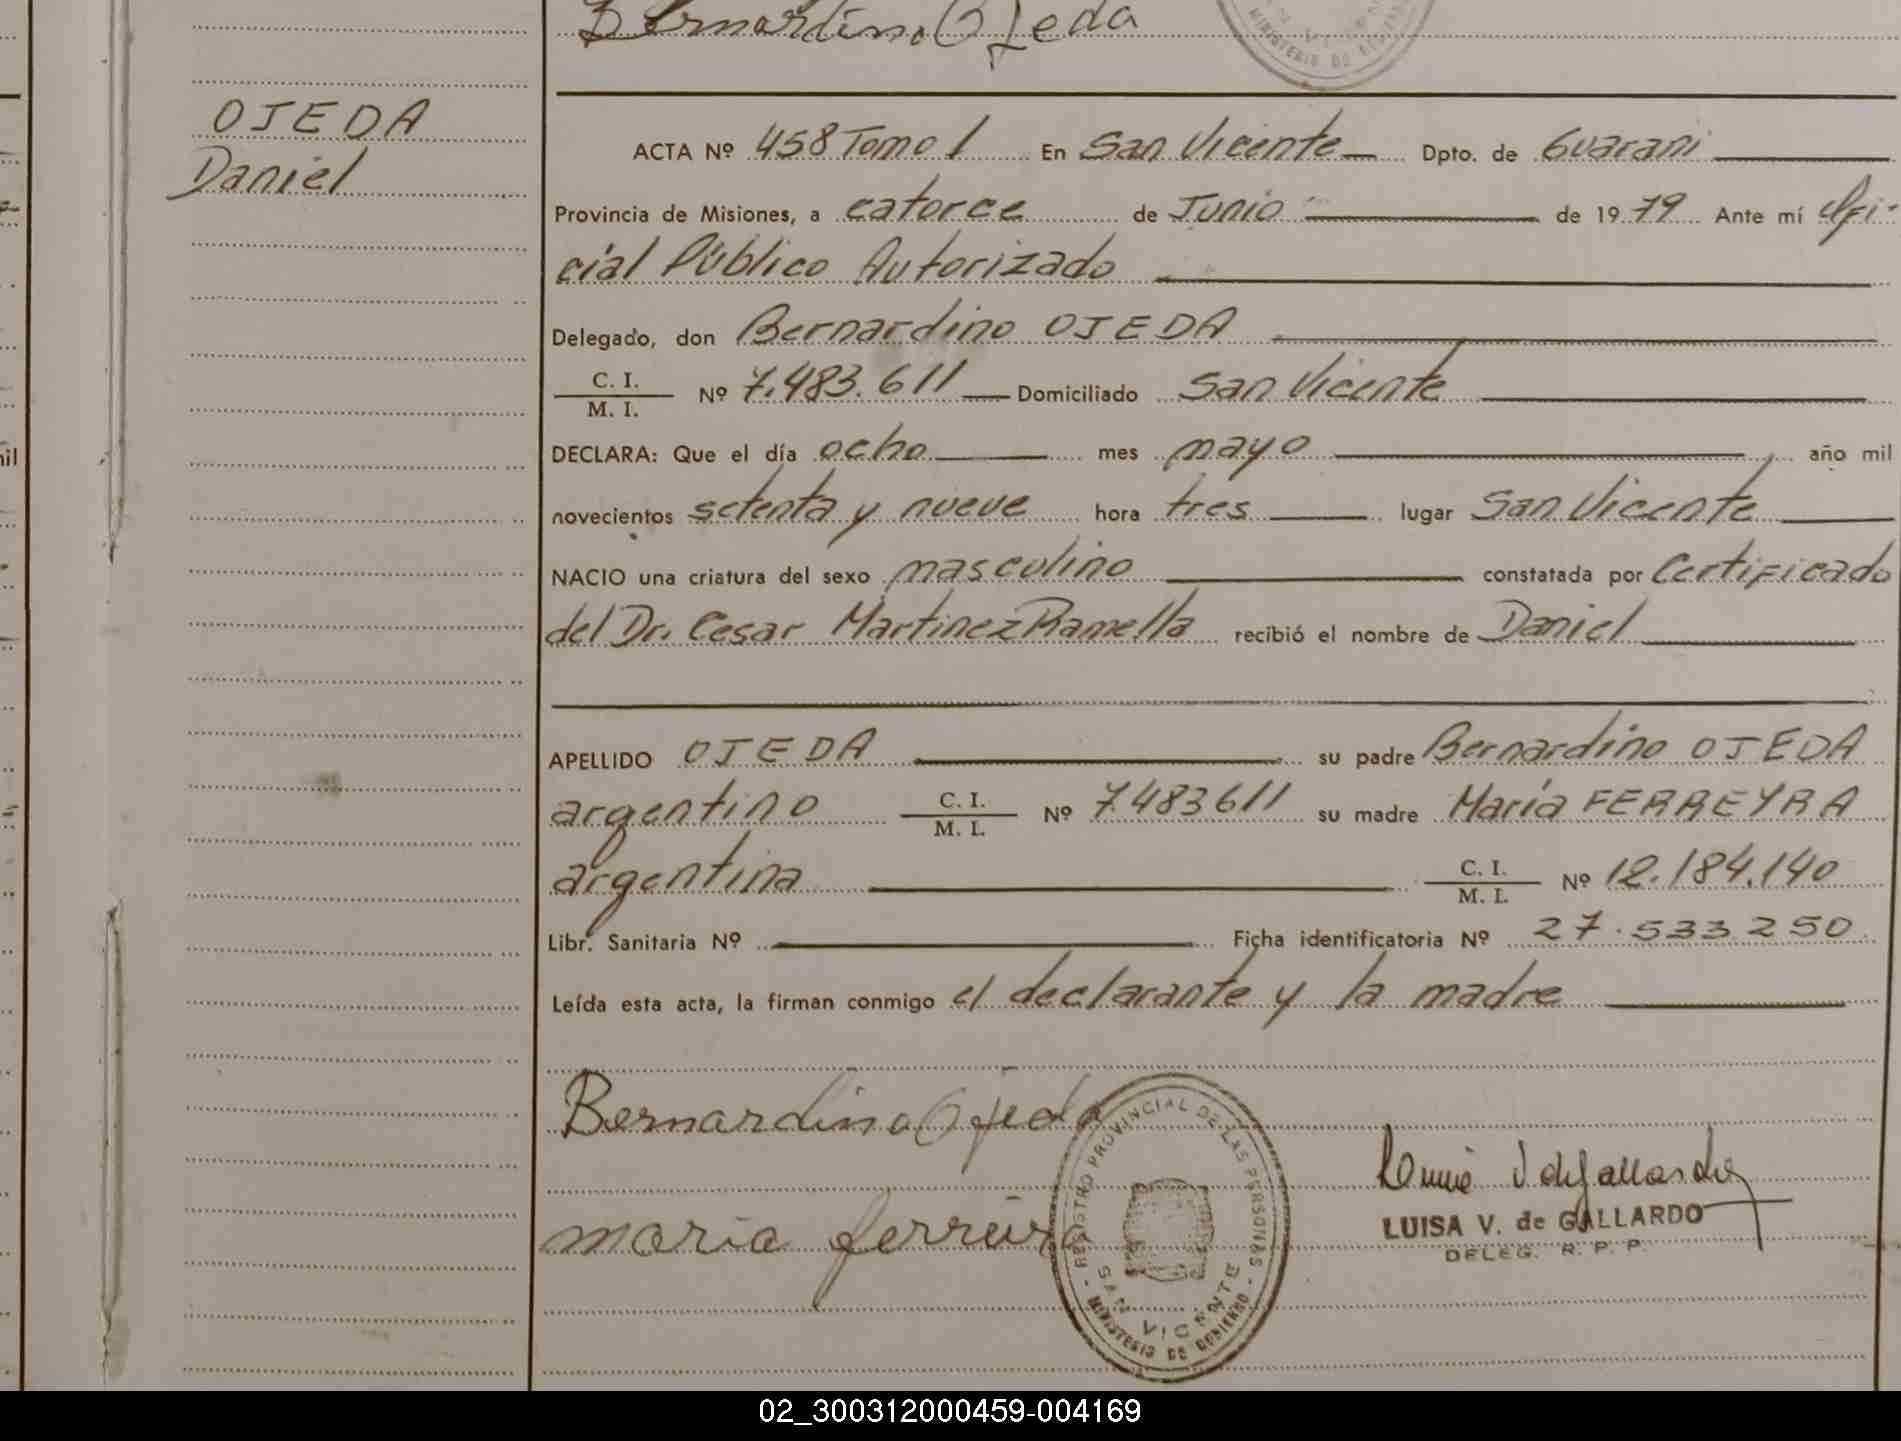 Bernardino Ojeda
MINISTERIO DE GOBIERNO
OJEDA
Daniel
ACTA Nº 458 Tomo I En San Vicente Dpto. de Guaraní
Provincia de Misiones, a catorce de Junio de 1979 Ante mí Ofi-
cial Público Autorizado
Delegado, don Bernardino OJEDA
C. I.
M. I. Nº 7.483.611 Domiciliado San Vicente
DECLARA: Que el día ocho mes mayo año mil
novecientos setenta y nueve hora tres lugar San Vicente
NACIO una criatura del sexo masculino constatada por Certificado
del Dr. Cesar Martinez Ramella recibió el nombre de Daniel
APELLIDO OJEDA su padre Bernardino OJEDA
argentino C. I.
M. I. Nº 7.483611 su madre María FERREYRA
argentina C. I.
M. I. Nº 12.184.140
Libr. Sanitaria Nº Ficha identificatoria Nº 27.533250
Leída esta acta, la firman conmigo el declarante y la madre
Bernardino Ojeda
maria ferreira
REGISTRO PROVINCIAL DE LAS PERSONAS
SAN VICENTE
MINISTERIO DE GOBIERNO
LUISA V. de GALLARDO
DELEG. R. P. P.
02_300312000459-004169